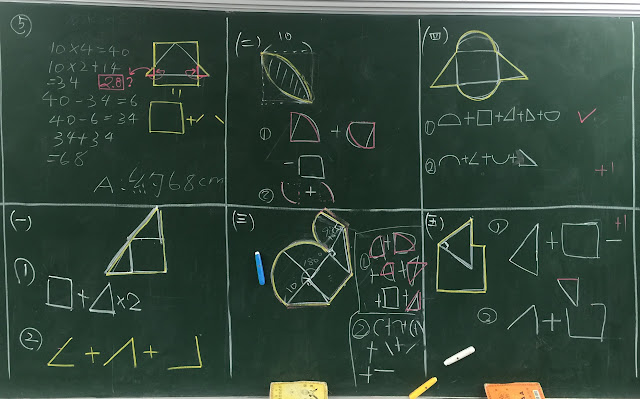 ⑤
10×4=40
10×2+14
=34
2.8?
40-34=6
40-6=34
34+34
=68
A:約68cm
(二)
10
①
+
-
②
+
(四)
①
+ + + +
②
+ + +
+1
(一)
①
+ ×2
②
+ +
(三)
180
10
①
+
+ +
+ +
②
+ +
+ +
+
(五)
①
+ -
+1
②
+